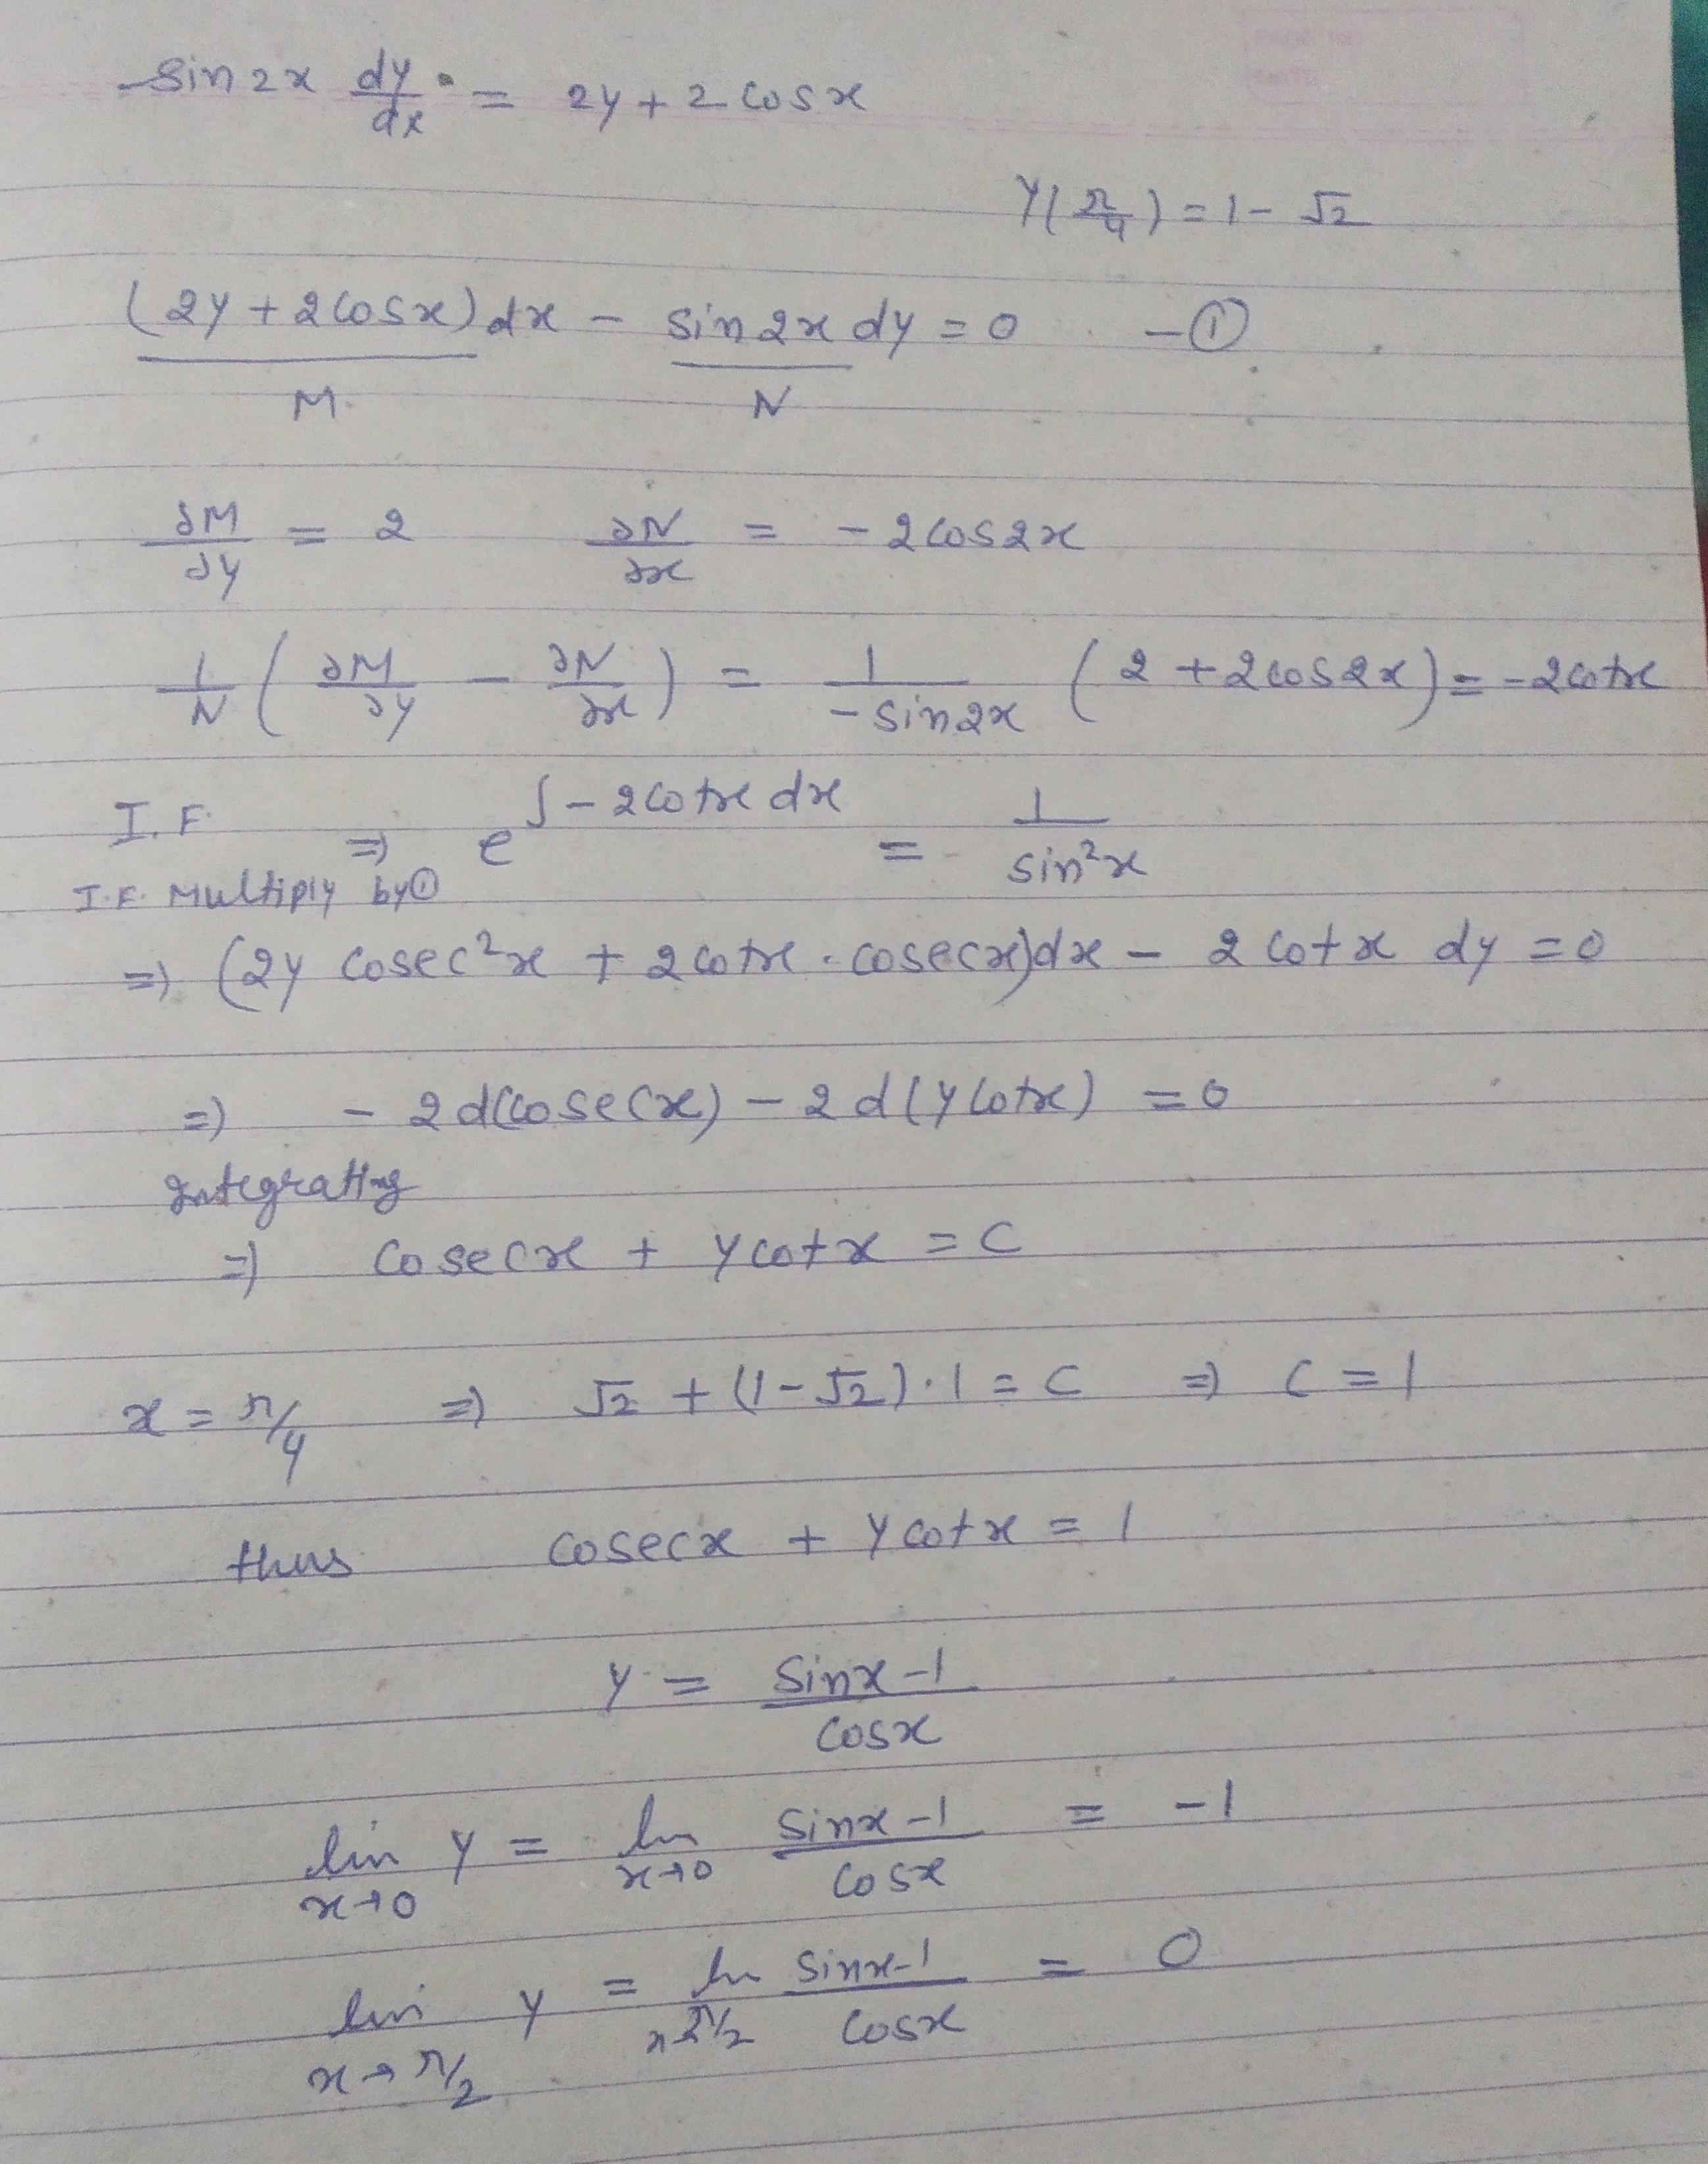 sin2x dy/dx = 2y + 2cosx
y(π/4) = 1 - √2
(2y + 2cosx)dx - sin2x dy = 0 -①
M N
∂M/∂y = 2 ∂N/∂x = -2cos2x
1/N (∂M/∂y - ∂N/∂x) = 1/-sin2x (2 + 2cos2x) = -2cotx
I.F. ⇒ e^∫-2cotx dx = 1/sin²x
I.F. Multiply by①
⇒ (2y cosec²x + 2cotx . cosecx)dx - 2cotx dy = 0
⇒ - 2d(cosecx) - 2d(ycotx) = 0
Integrating
⇒ cosecx + ycotx = C
x = π/4 ⇒ √2 + (1-√2).1 = C ⇒ C = 1
thus cosecx + ycotx = 1
y = sinx-1/cosx
lim x→0 y = lim x→0 sinx-1/cosx = -1
lim x→π/2 y = lim x→π/2 sinx-1/cosx = 0